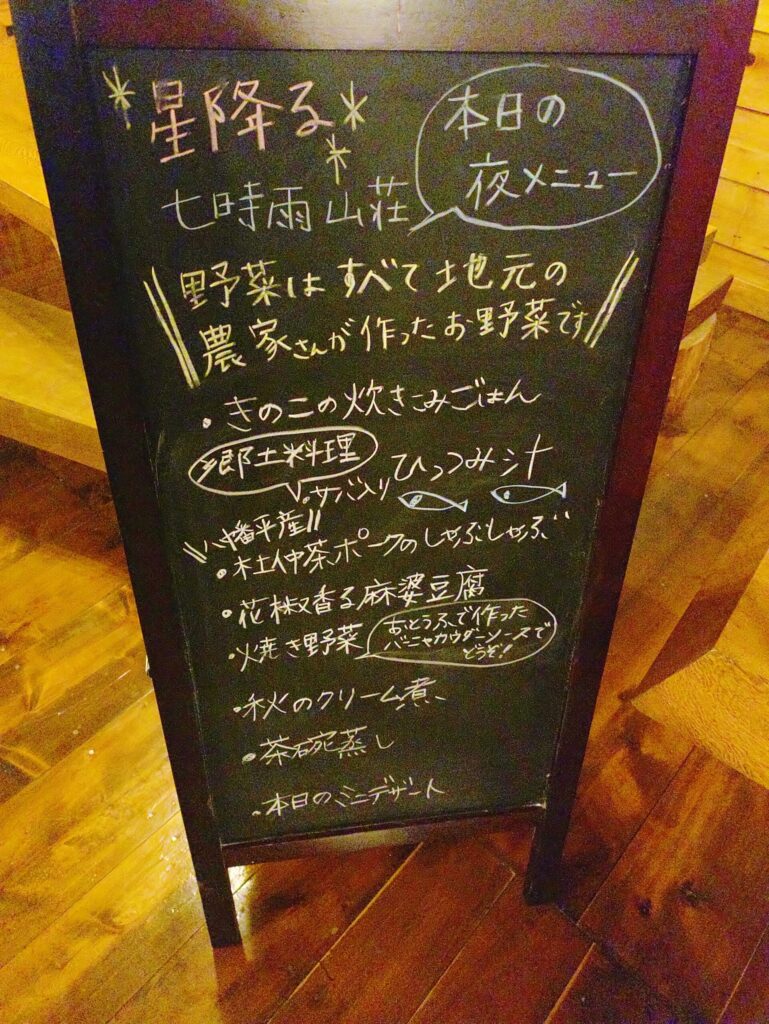 星降る
七時雨山荘
本日の
夜メニュー
野菜は すべて 地元の
農家さんが 作った お野菜です
・きのこの炊きこみごはん
郷土料理
・サバ入り ひっつみ汁
八幡平産
・杜仲茶ポークのしゃぶしゃぶ
・花椒香る麻婆豆腐
・焼き野菜
おとうふで作った
バーニャカウダーソースで
どうぞ!
・秋のクリーム煮
・茶碗蒸し
・本日のミニデザート